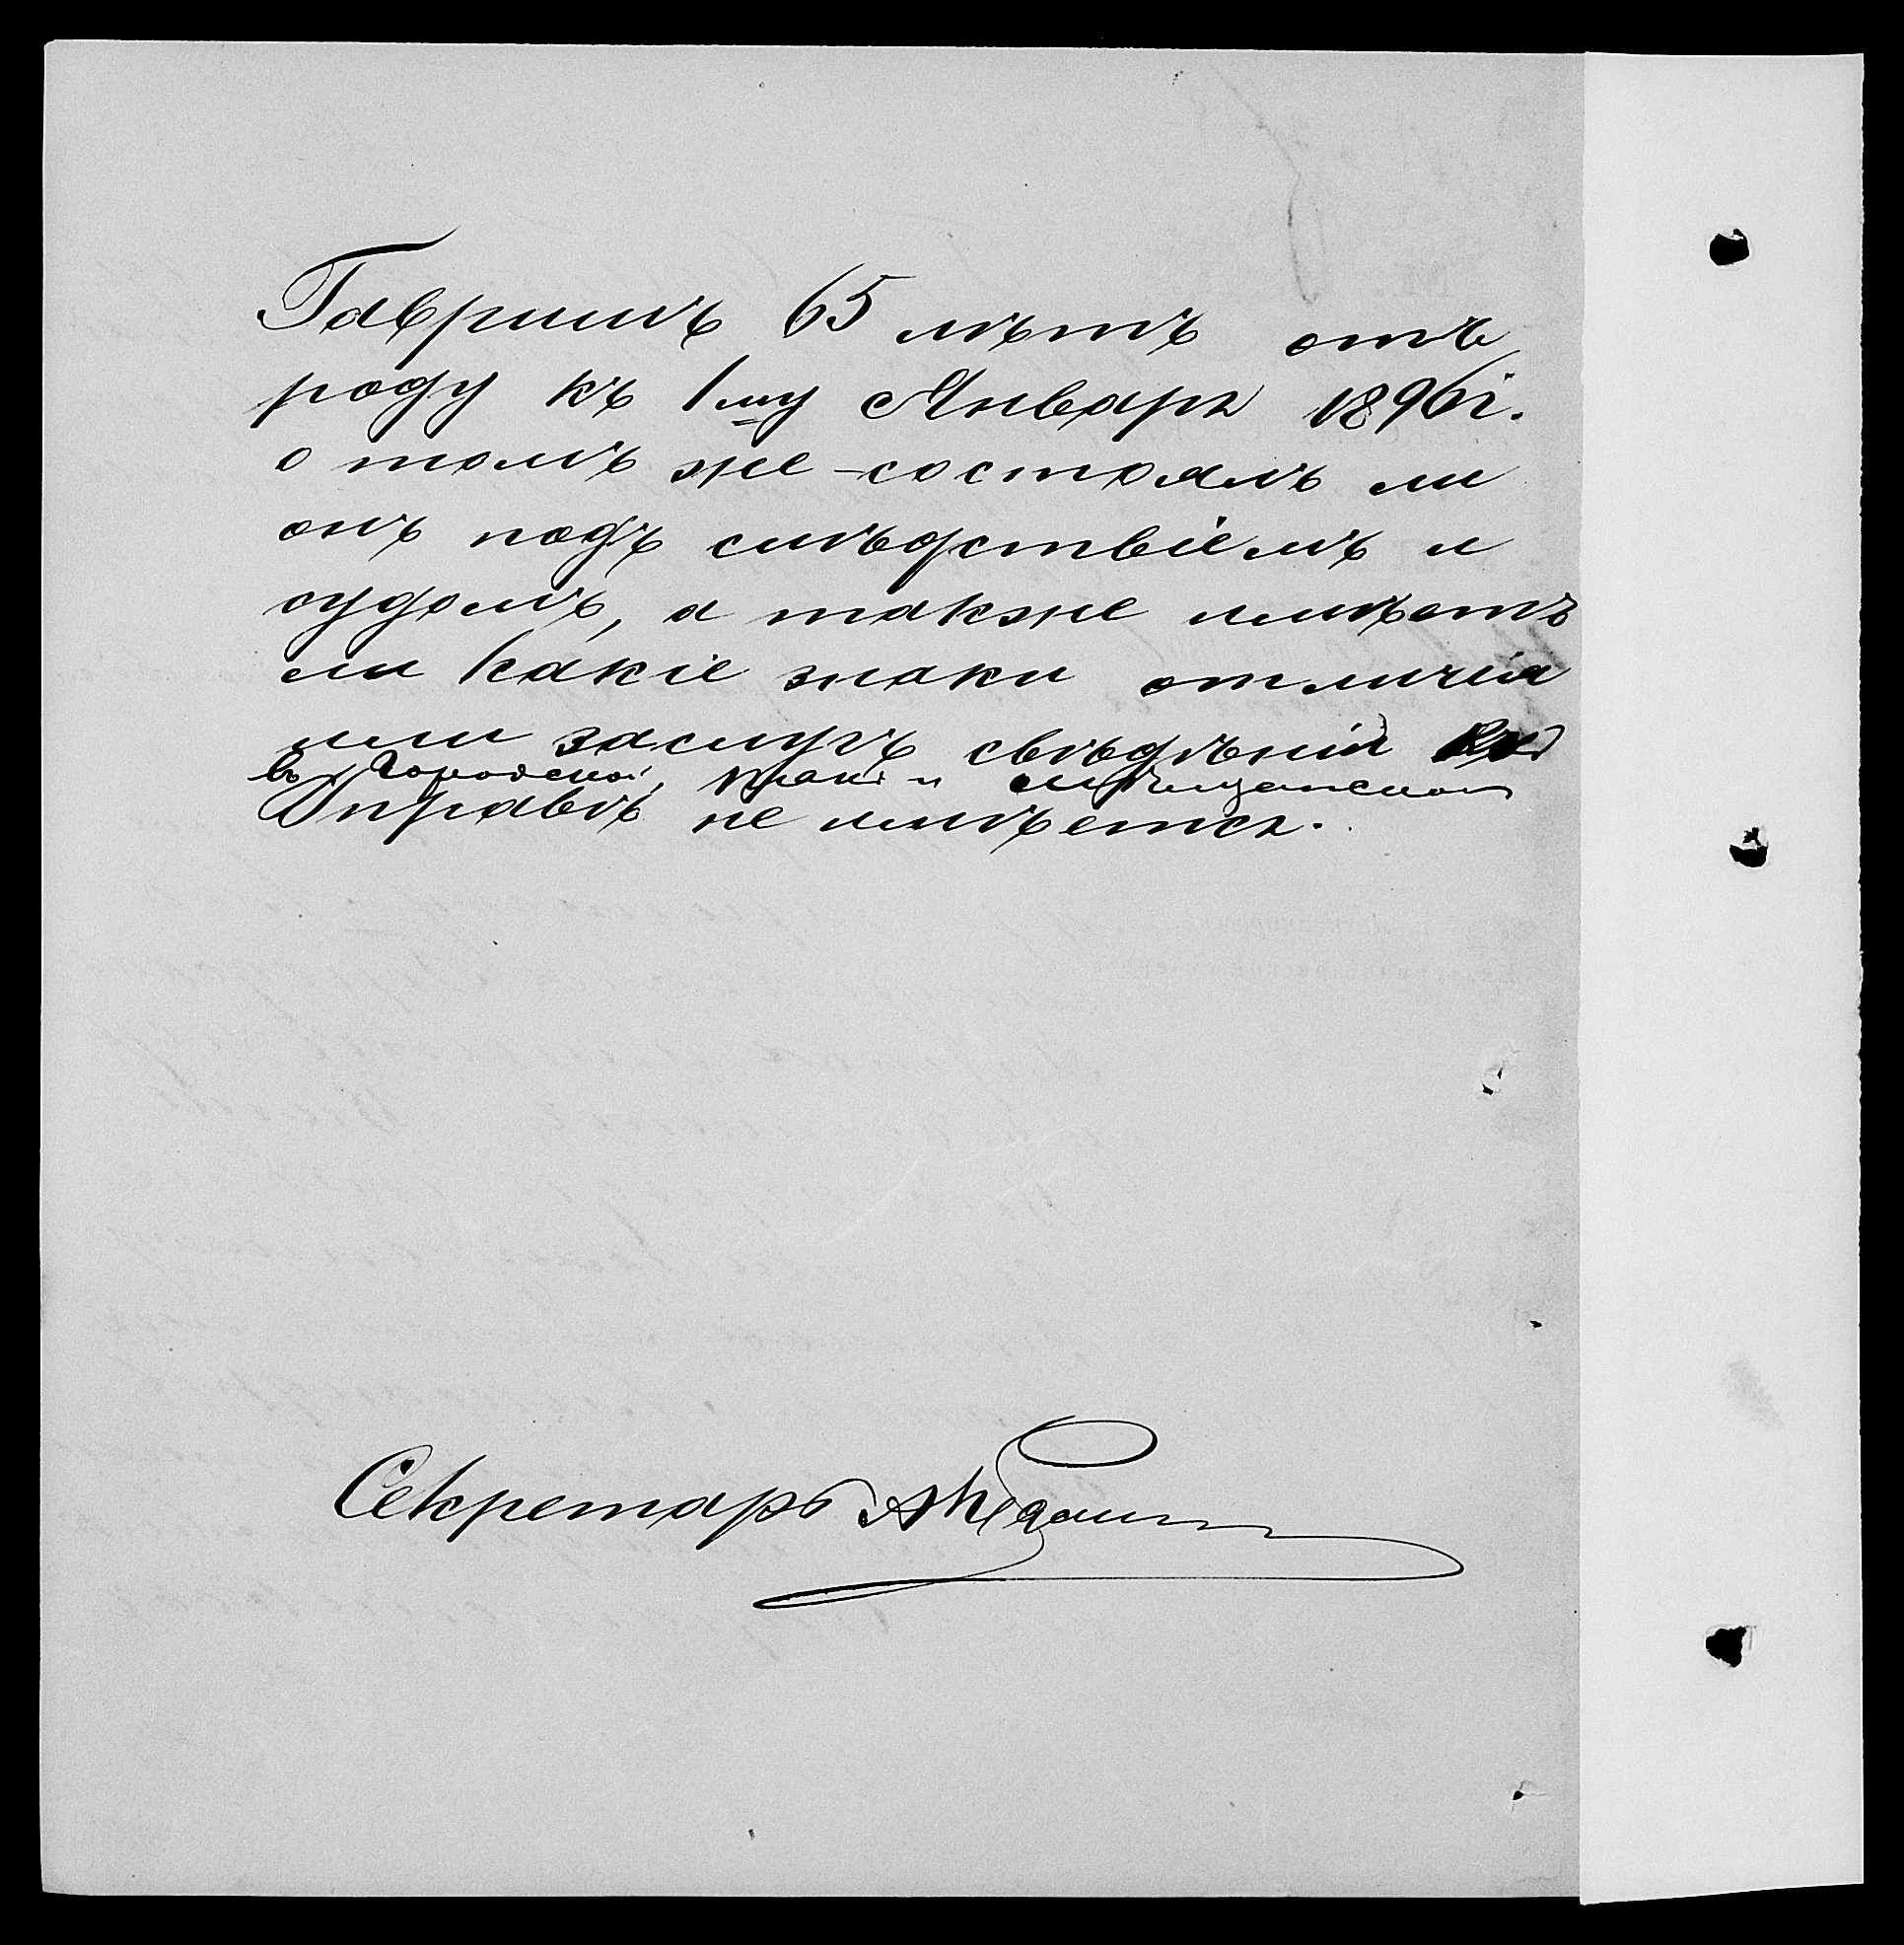 Гаврилъ 65 лѣтъ отъ
роду къ 1му Января 1896 г.
о томъ же состоялъ ли
онъ подъ слѣдствіемъ и
судомъ, а также имѣетъ
ли какіе знаки отличія
или заслугъ свѣдѣній
въ Городской, и мѣщанской
Управѣ не имѣется.
Секретарь